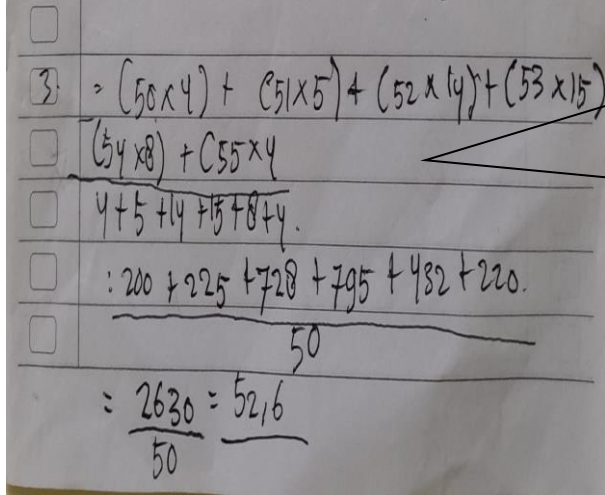 3. = (50x4) + (51x5) + (52x14) + (53x15)
(54x8) + (55x4
4+5+14+15+8+4.
: 200 + 225 + 728 + 795 + 432 + 220.
50
= 2630 = 52,6
50